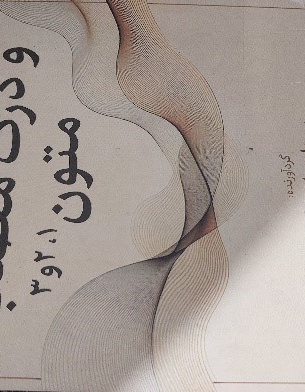 و درک
متون ۱، ۲ و ۳
گردآورنده: